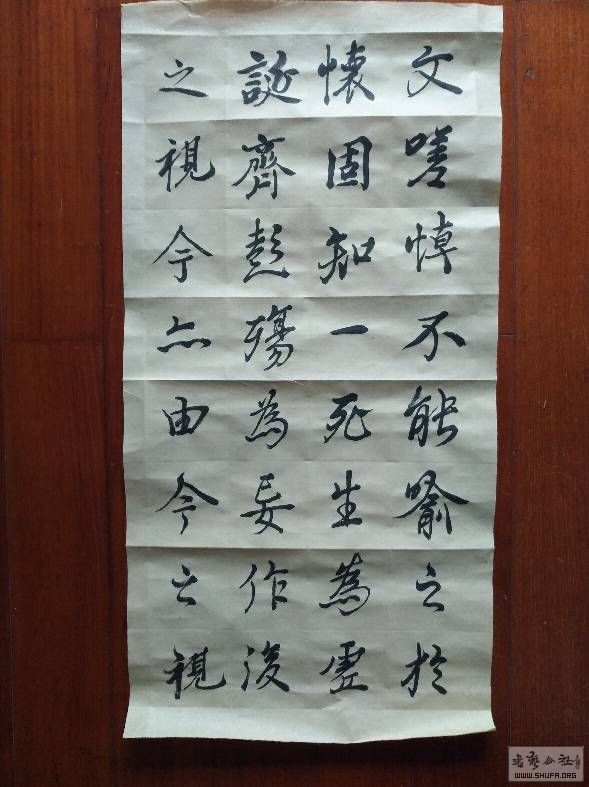 文嗟悼不能喻之於
懷固知一死生為虛
誕齊彭殤為妄作後
之視今亦由今之視
WWW.SHUFA.ORG